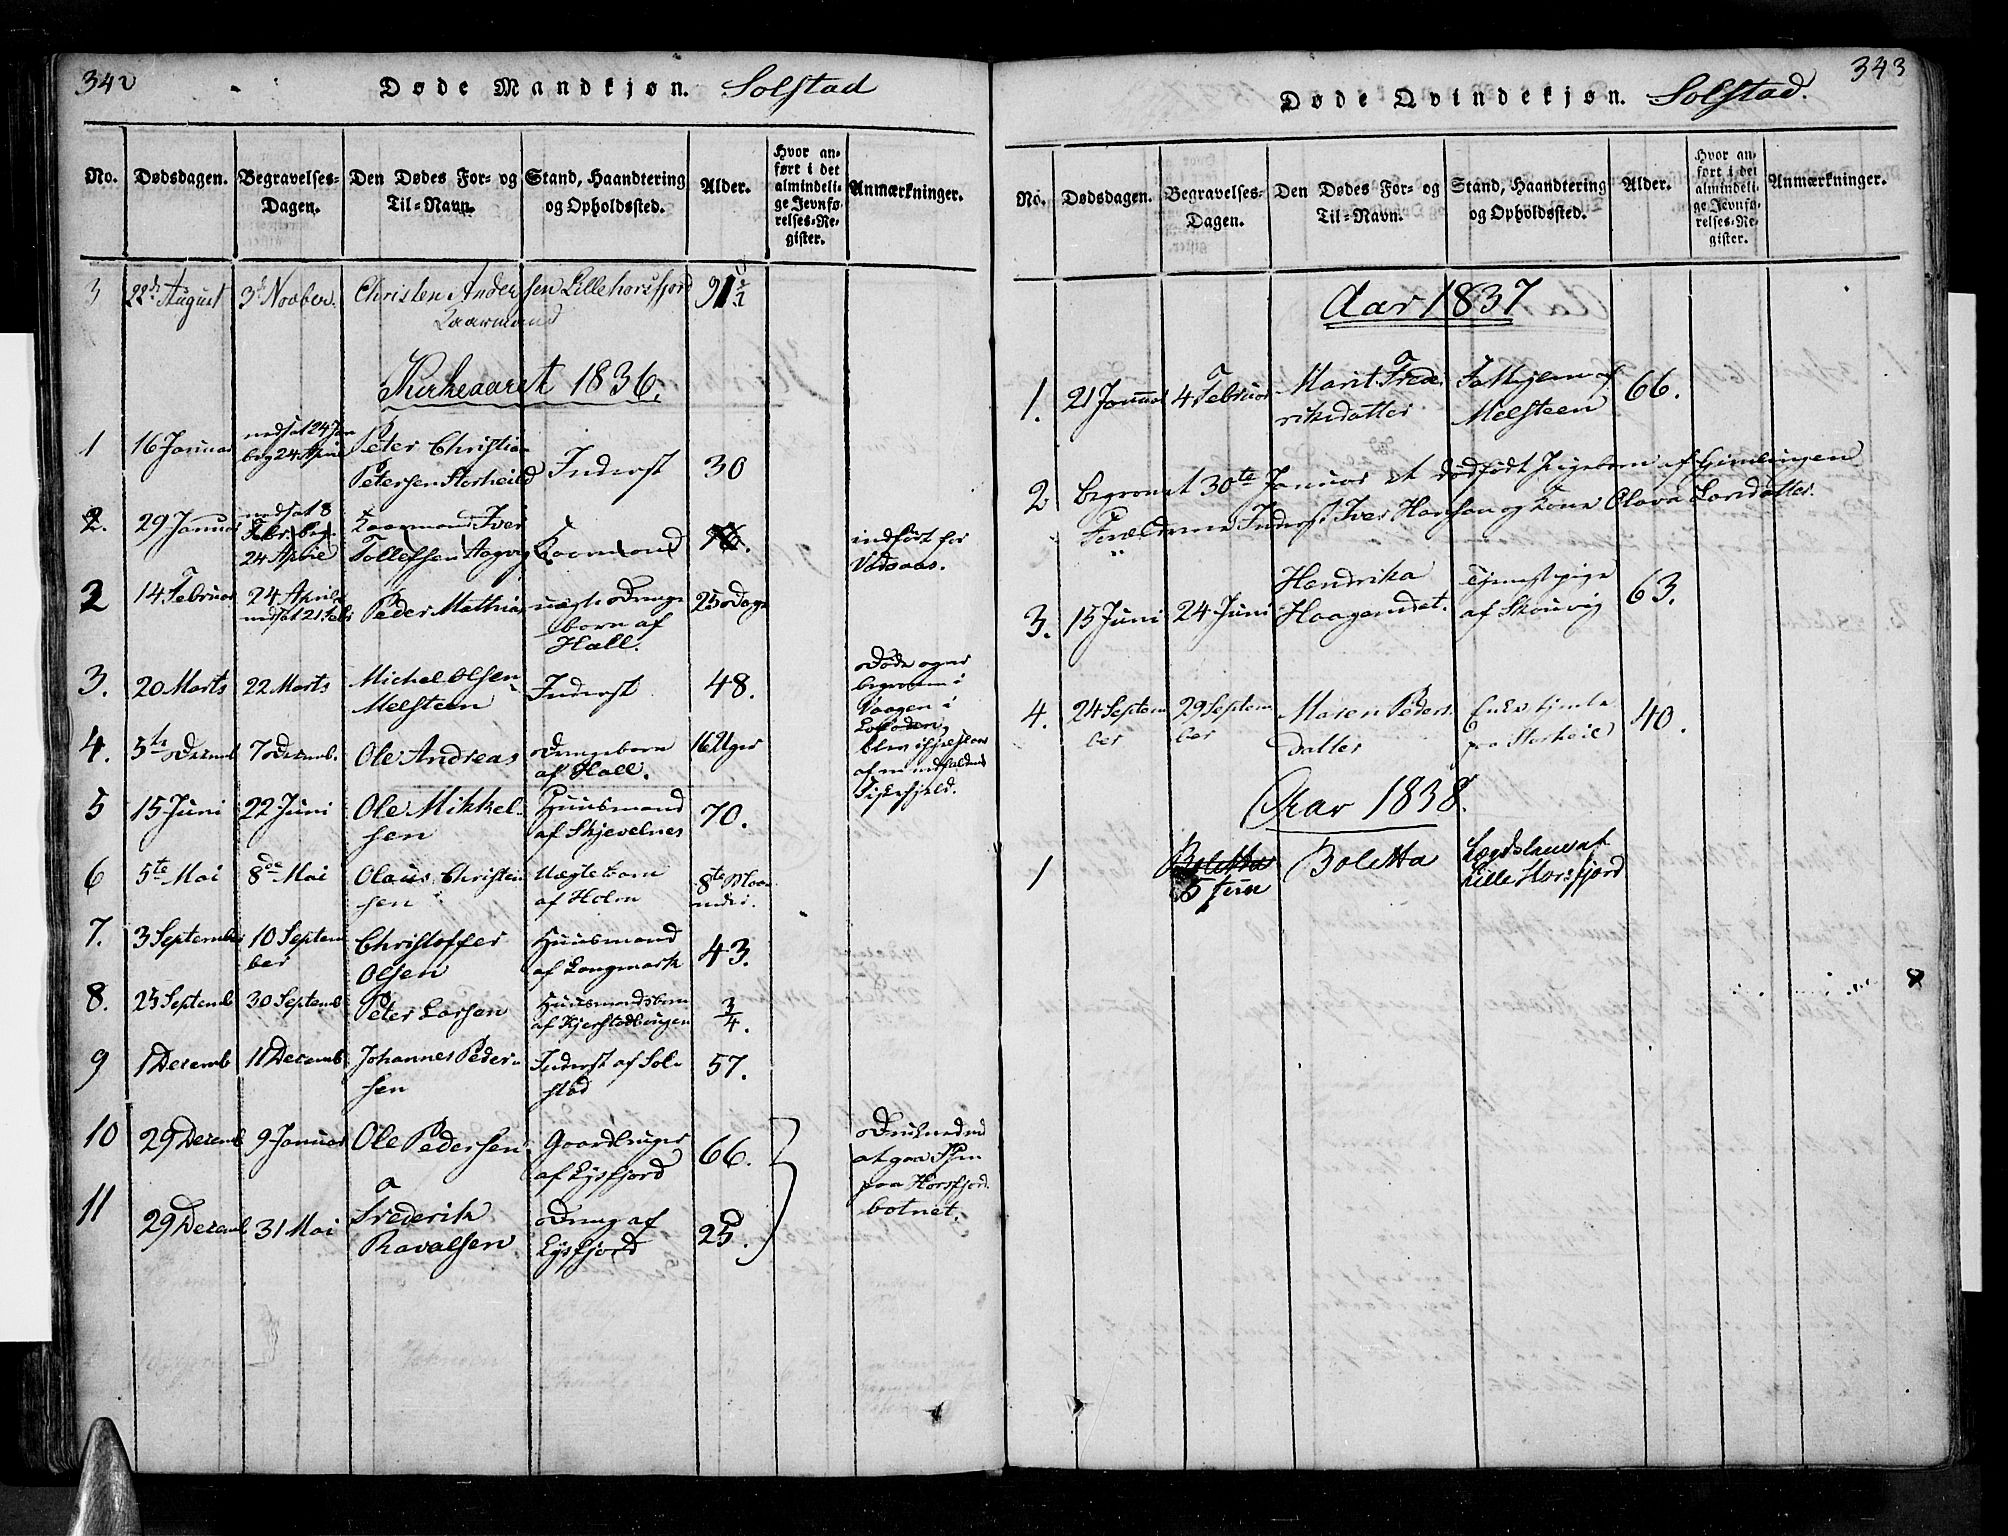 342
Døde Mandkjøn. Solstad
No. Dødsdagen. Begravelses-Dagen. Den Dødes For- og Til-Navn. Stand, Haandtering og Opholdssted. Alder. Hvor anført i det almindelige Jevnførelses-Register. Anmærkninger.
3 22de August 3d Novber. Christen Andersen Lillehorsfjord 91 1/2
Kaarmand
Kirkeaaret 1836.
1 16 Januar nedsat 24 Jan
beg 24 April Peter Christian
Petersen Storheild Inderst 30
2. 29 Januar nedsat 8
Febr. beg.
24 April Kaarmand Iver
Tollefsen Aagvig Kaarmand 76. indført for
Vadsaas.
2 14 Februar 24 April
nedsat 21 Febr Peder Mathias uægte Drenge
born af
Hall. 25 Dage
3. 20 Marts 22 Marts Michel Olsen
Melsteen Inderst 48. Døde oger
begraven i
Vaagen i
Lofoden
af en nedfalden
4. 5te Decemb 7 Decemb. Ole Andreas Drengeborn
af Hall. 16 Uger
5 15 Juni 22 Juni Ole Mikkel-
sen Huusmand
af Skjevelnes 70.
6 5te Mai 8de Mai Olaus Christen
sen Uægte barn
af Holm 8te Maa
neder.
7. 3 September 10 Septem
ber Christoffer
Olsen Huusmand
af Langmark 43.
8. 25 Septemb 30 Septemb Peter Larsen Huusmandsborn
af Hjerstadbugen 3/4.
9 1 Decemb 11 Decemb Johannes Peder-
sen Inderst af Sol-
stad 57.
10 29 Decemb 9 Januar Ole Pedersen Gaardbruger
af Eysfjord 66. Druknedved
at gaa
paa Horsfjord
botnet.
11 29 Decemb 31 Mai Frederik
Ravalsen Dreng af
Eysfjord 25.
343
Døde Qvindekjøn. Solstad.
No. Dødsdagen. Begravelses-Dagen. Den Dødes For- og Til-Navn. Stand, Haandtering og Opholdssted. Alder. Hvor anført i det almindelige Jevnførelses-Register. Anmærkninger.
Aar 1837
1. 21 Januar 4 Februar Marit Frede-
riksdatter af
Melsteen 66.
2 begravet 30te Januar et dødfødt Pigeborn af Gimlingen
Forældrene Inderst Iver Hansen og Kone Olava Larsdatter.
3. 15 Juni 24 Juni Hendrika
Haagensdat. Tjenestpige
af Skouvig 63.
4. 24 Septem
ber 29 Septem
ber Maren Peders
datter Enke tjente
paa Storheil 40.
Aar 1838.
1 Boletta
Boletta Lægdslem af
Lille Horsfjord